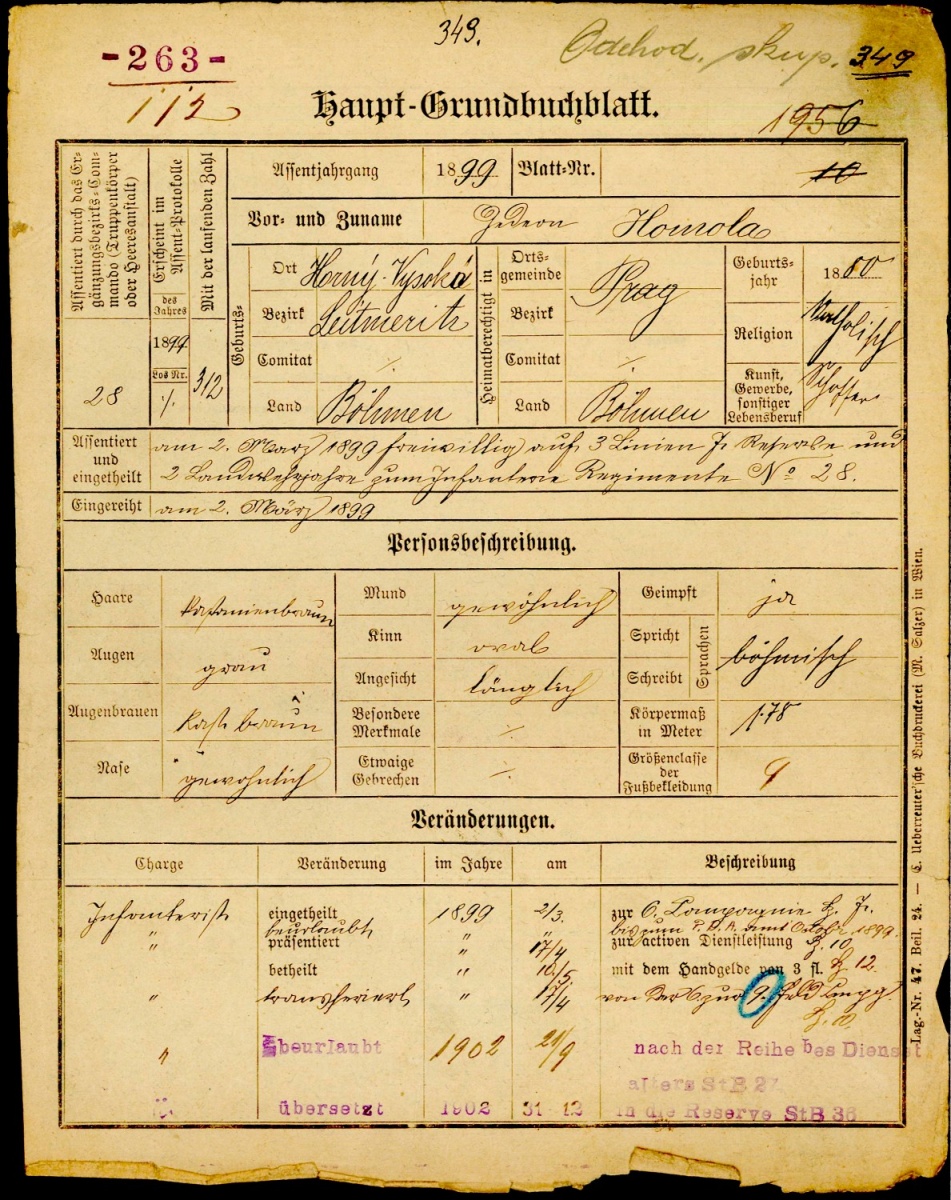 349.
Odchod. skup. 349
-263-
112
Haupt-Grundbuchblatt.
1956
10
Assentiert durch das Ergänzungsbezirks-Commando (Truppenkörper oder Heeresanstalt)
28
Erscheint im Assent-Protokolle
des Jahres
1899
Los Nr.
·/.
Mit der laufenden Zahl
312
Assentjahrgang 1899 Blatt-Nr.
Vor- und Zuname Gedeon Homola
Geburts-
Ort Horný-Vysoká
Bezirk Leitmeritz
Comitat ·/.
Land Böhmen
Heimatberechtigt in
Ortsgemeinde Prag
Bezirk
Comitat ·/.
Land Böhmen
Geburtsjahr 1880
Religion katholisch
Kunst, Gewerbe, sonstiger Lebensberuf
Assentiert und eingetheilt am 2. März 1899 freiwillig auf 3 Linien 7 Reserve und
2 Landwehrjahre zum Infanterie Regimente No 28.
Eingereiht am 2. März 1899
Personsbeschreibung.
Haare kastanienbraun
Augen grau
Augenbrauen kast braun
Nase gewöhnlich
Mund gewöhnlich
Kinn oval
Angesicht länglich
Besondere Merkmale ·/.
Etwaige Gebrechen ·/.
Geimpft ja
Spricht
Schreibt
Sprachen böhmisch
Körpermaß in Meter 1·78
Größenclasse der Fußbekleidung 9
Veränderungen.
Charge Veränderung im Jahre am Beschreibung
Infanterist eingetheilt 1899 2/3. zur 6. Compagnie
" beurlaubt " " bis zum 1899
präsentiert " 17/4 zur activen Dienstleistung
betheilt " 10/5 mit dem Handgelde von 3 fl. 12.
" transferiert " 17/4 von der 6 zur 9. Feld Compg.
" beurlaubt 1902 21/9 nach der Reihe des Dienst
alters StB 27
" übersetzt 1902 31 12 in die Reserve StB 36
Lag.-Nr. 47. Beil. 24. — C. Ueberreuter'sche Buchdruckerei (M. Salzer) in Wien.